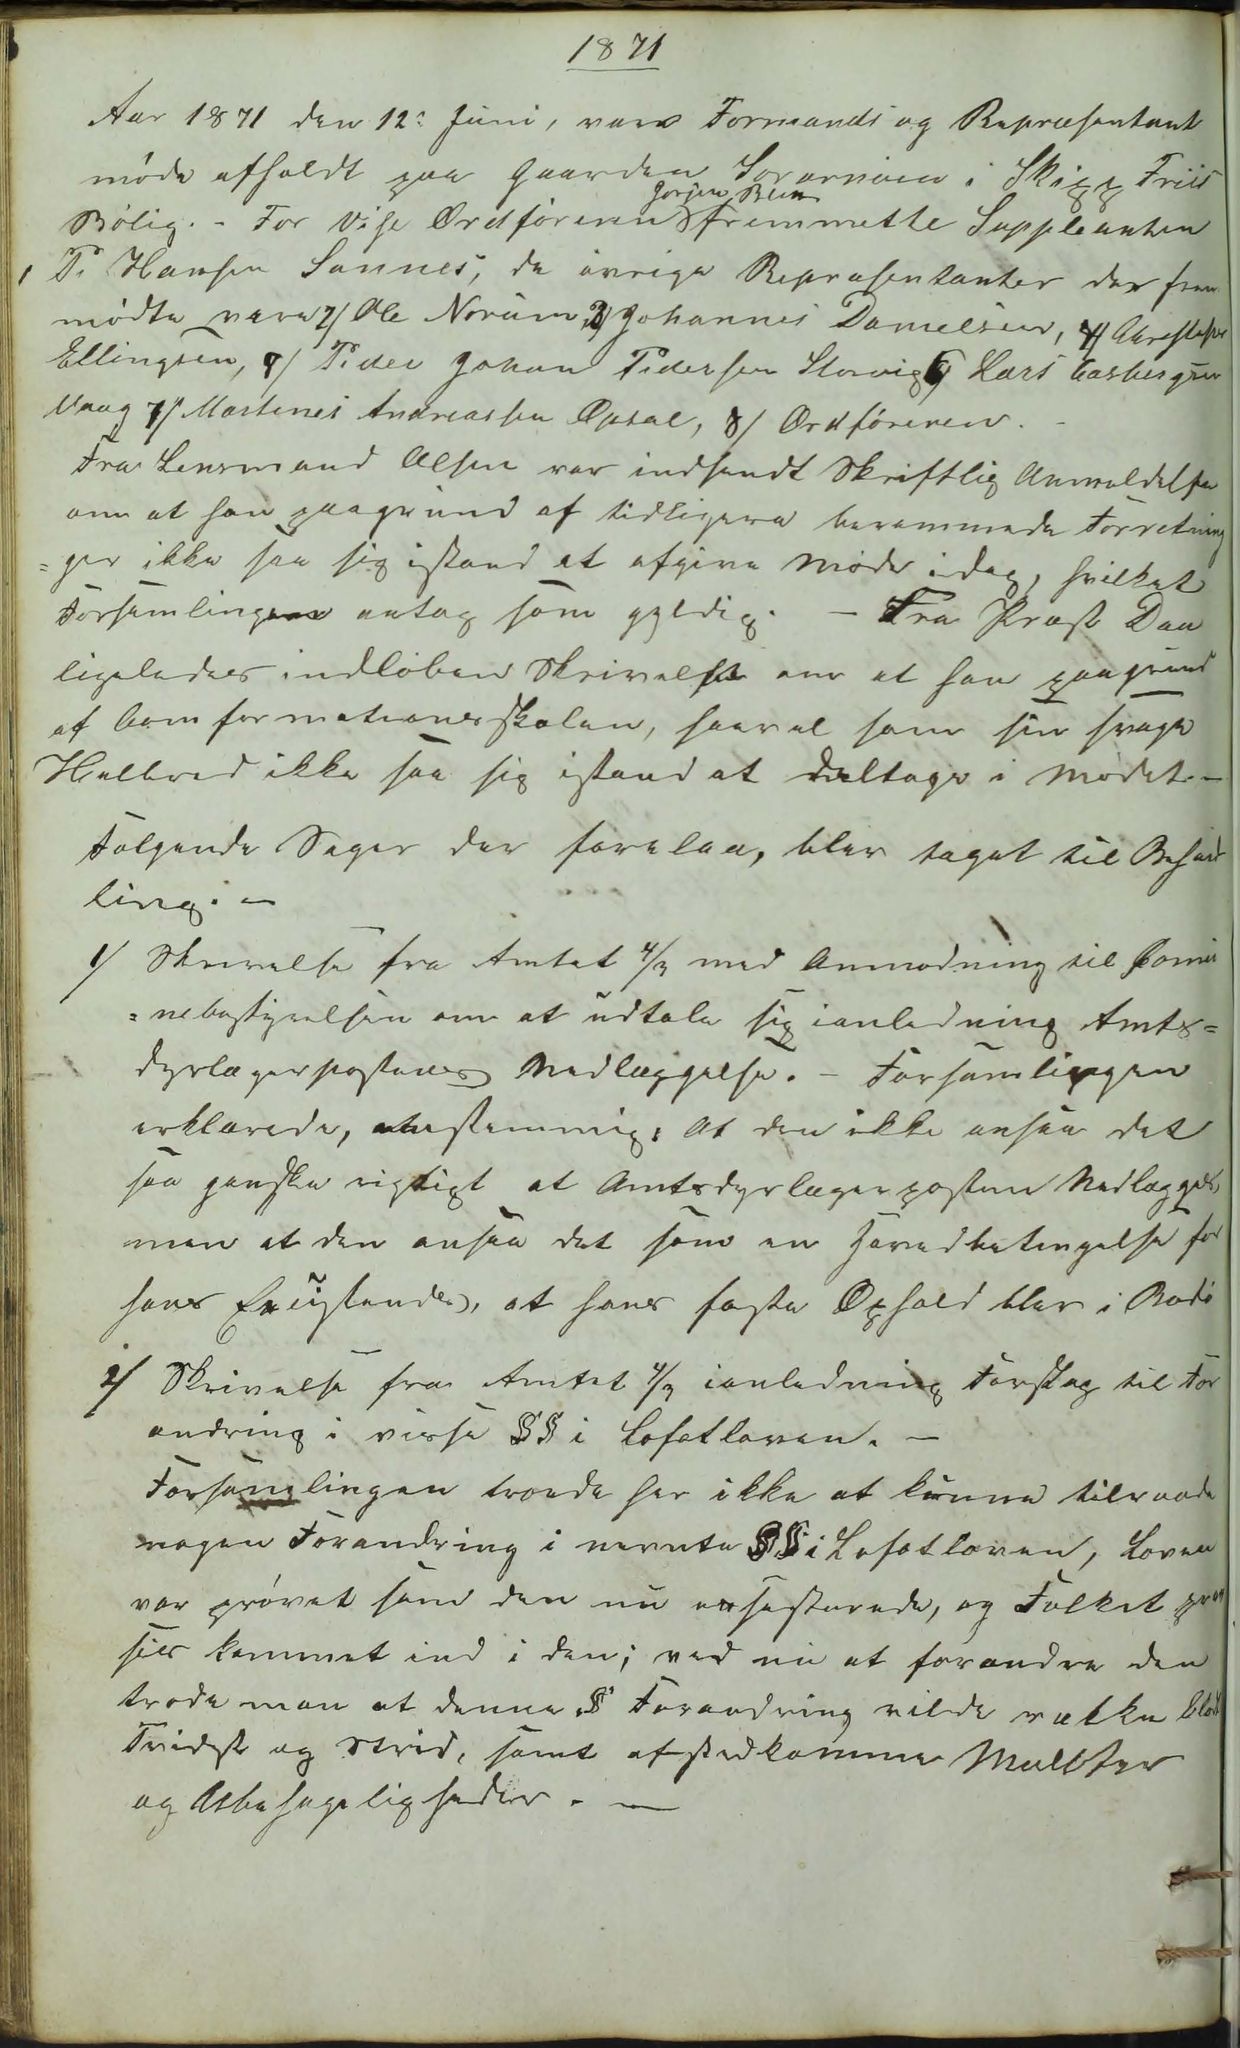 1871
Aar 1871 den 12: Juni, var Formands og Repræsentant
møde afholdt paa Gaarden i Skipp Friis
Jørgen Been
Bølig. - For Vise Ordføreren fremmette Suppleanten
1 P. Hansen Sannes, de øvrige Repræsentanter der frem
mødte vare 2/ Ole Norum, 3/ Johannes Danielsen, 4/
Ellingsen, 5/ Peder Johan Pedersen Storvig 6/ Lars Casbergsen
Vaag 7/ Martines Andreassen Opsal, 8/ Ordføreren. -
Fra Lensmand Olsen var indsendt Skriftlig Anmeldelse
om at han paagrund af tidligere berammede Forretning
=ger ikke saa sig istand at afgive Møde idag, hvilket
Forsamlingen antog som gyldig. - Fra Præst Daa
ligeledes indløben Skrivelse om at han paagrund
af Comformationsskolen, saavel som sin svage
Helbred ikke saa sig istand at deeltage i Mødet. -
Følgende Sager der forelaa, blev taget til Behand
ling. -
1/ Skrivelse fra Amtet 4/3 med Anmodning til Comu
=nebestyrelsen om at udtale sig ianledning Amts=
dyrlægepostens Nedlæggelse. - Forsamlingen
erklærede, enstemmig: At den ikke ansaa det
saa ganske rigtigt at Amtsdyrlægeposten Nedlægges,
men at den ansaa det som en Hovedbetingelse for
hans Existends, at hans faste Ophold blev i Bodø
2/ Skrivelse fra Amtet 4/3 ianledning Forslag til For
andring i visse §§ i Lofotloven. -
Forsamlingen troede her ikke at kunne tilraade
nogen Forandring i nevnte §§ i Lofotloven, Loven
var prøvet som den nu existerede, og Folket
kommet ind i den; ved nu at forandre den
trode man at denne § Forandring vilde vække blot
Tvidst og Strid, samt afstedkomme Mulkter
og Ubehageligheder. -